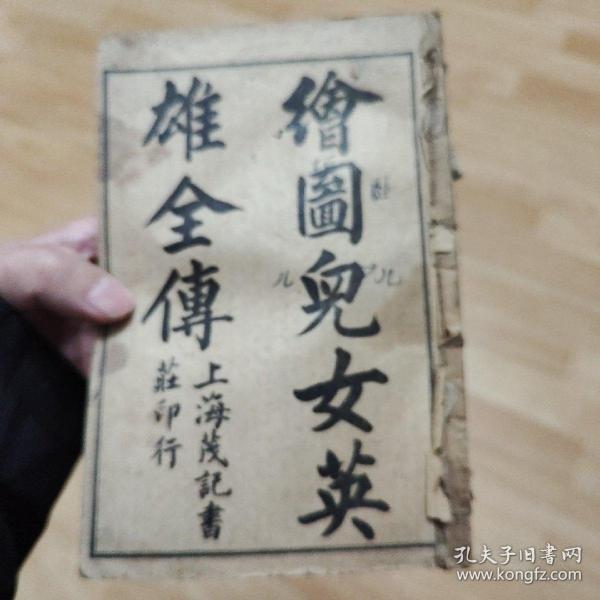 繪圖兒女英
雄全傳
上海茂記書
莊印行
孔夫子旧书网
www.kongfz.com